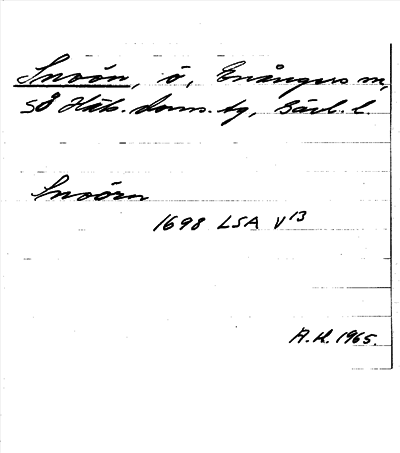 Snoön, ö, Enångers sn,
SÖ Häls. doms. tg, Gävl. l.
Snoörn
1698 LSA V13
A.H. 1965.